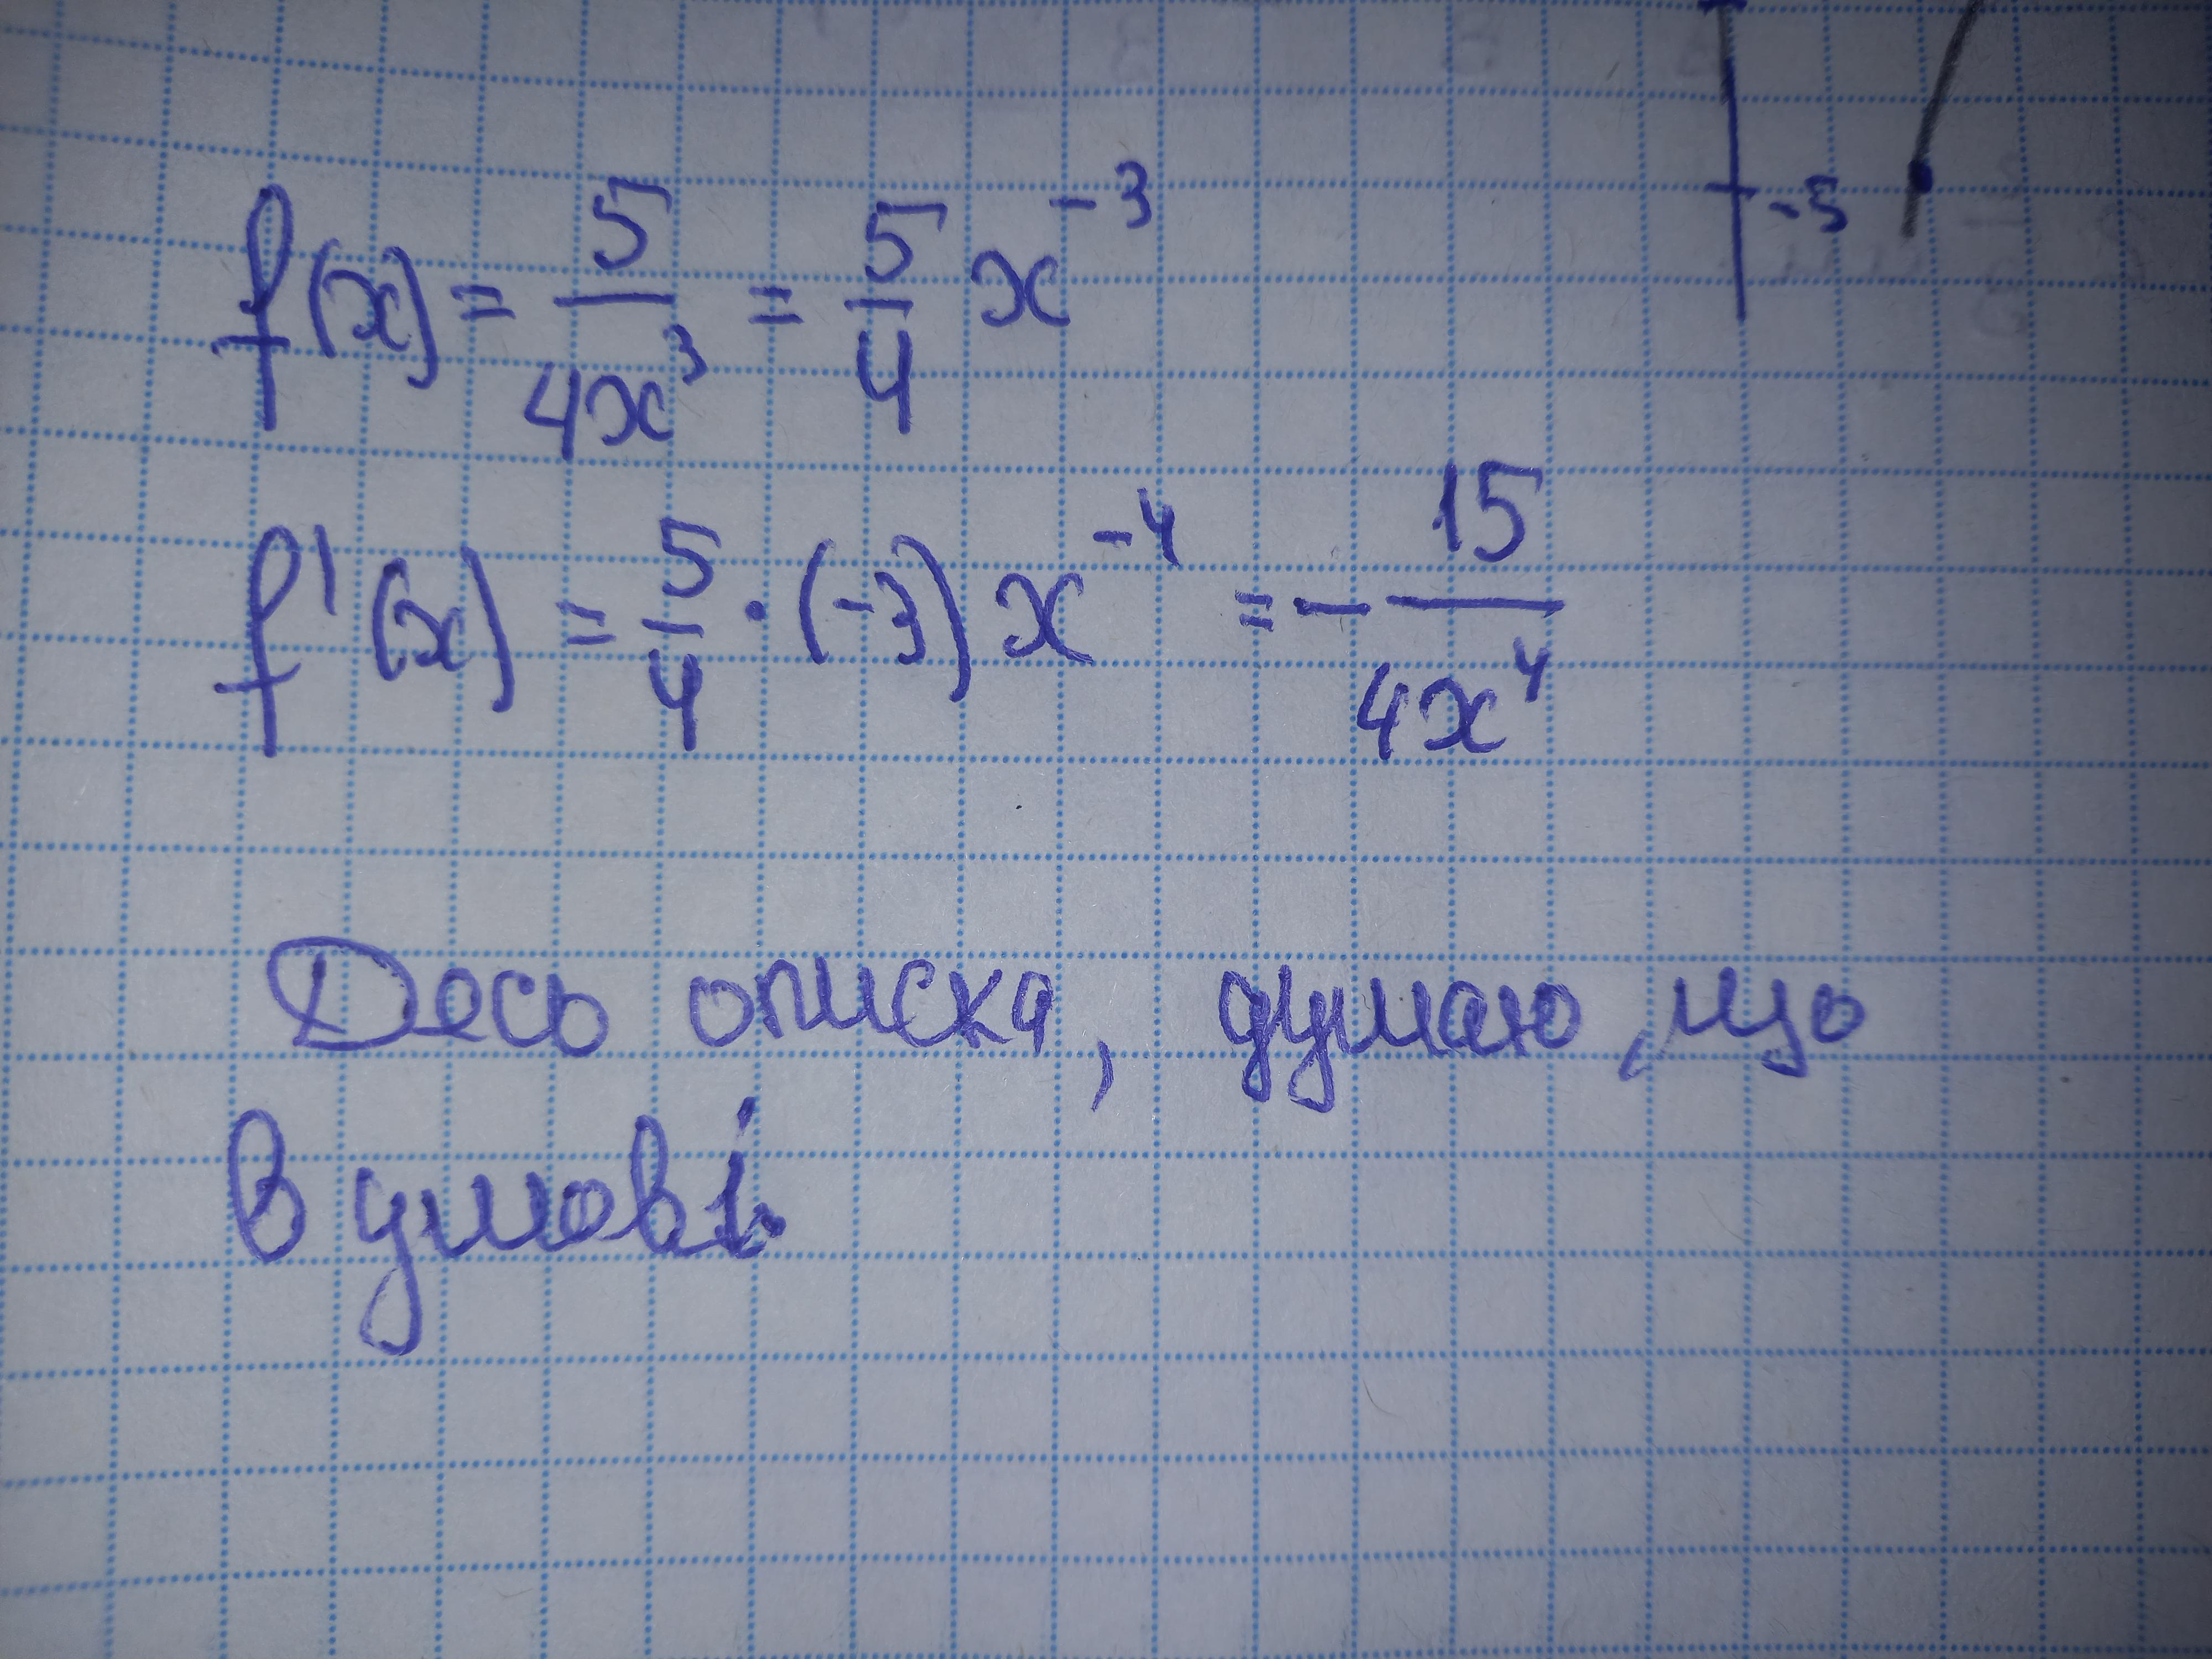 -5
f(x) = 5/(4x³) = 5/4 x⁻³
f'(x) = 5/4 · (-3) x⁻⁴ = - 15/(4x⁴)
Десь описка, думаю, що
в умові.